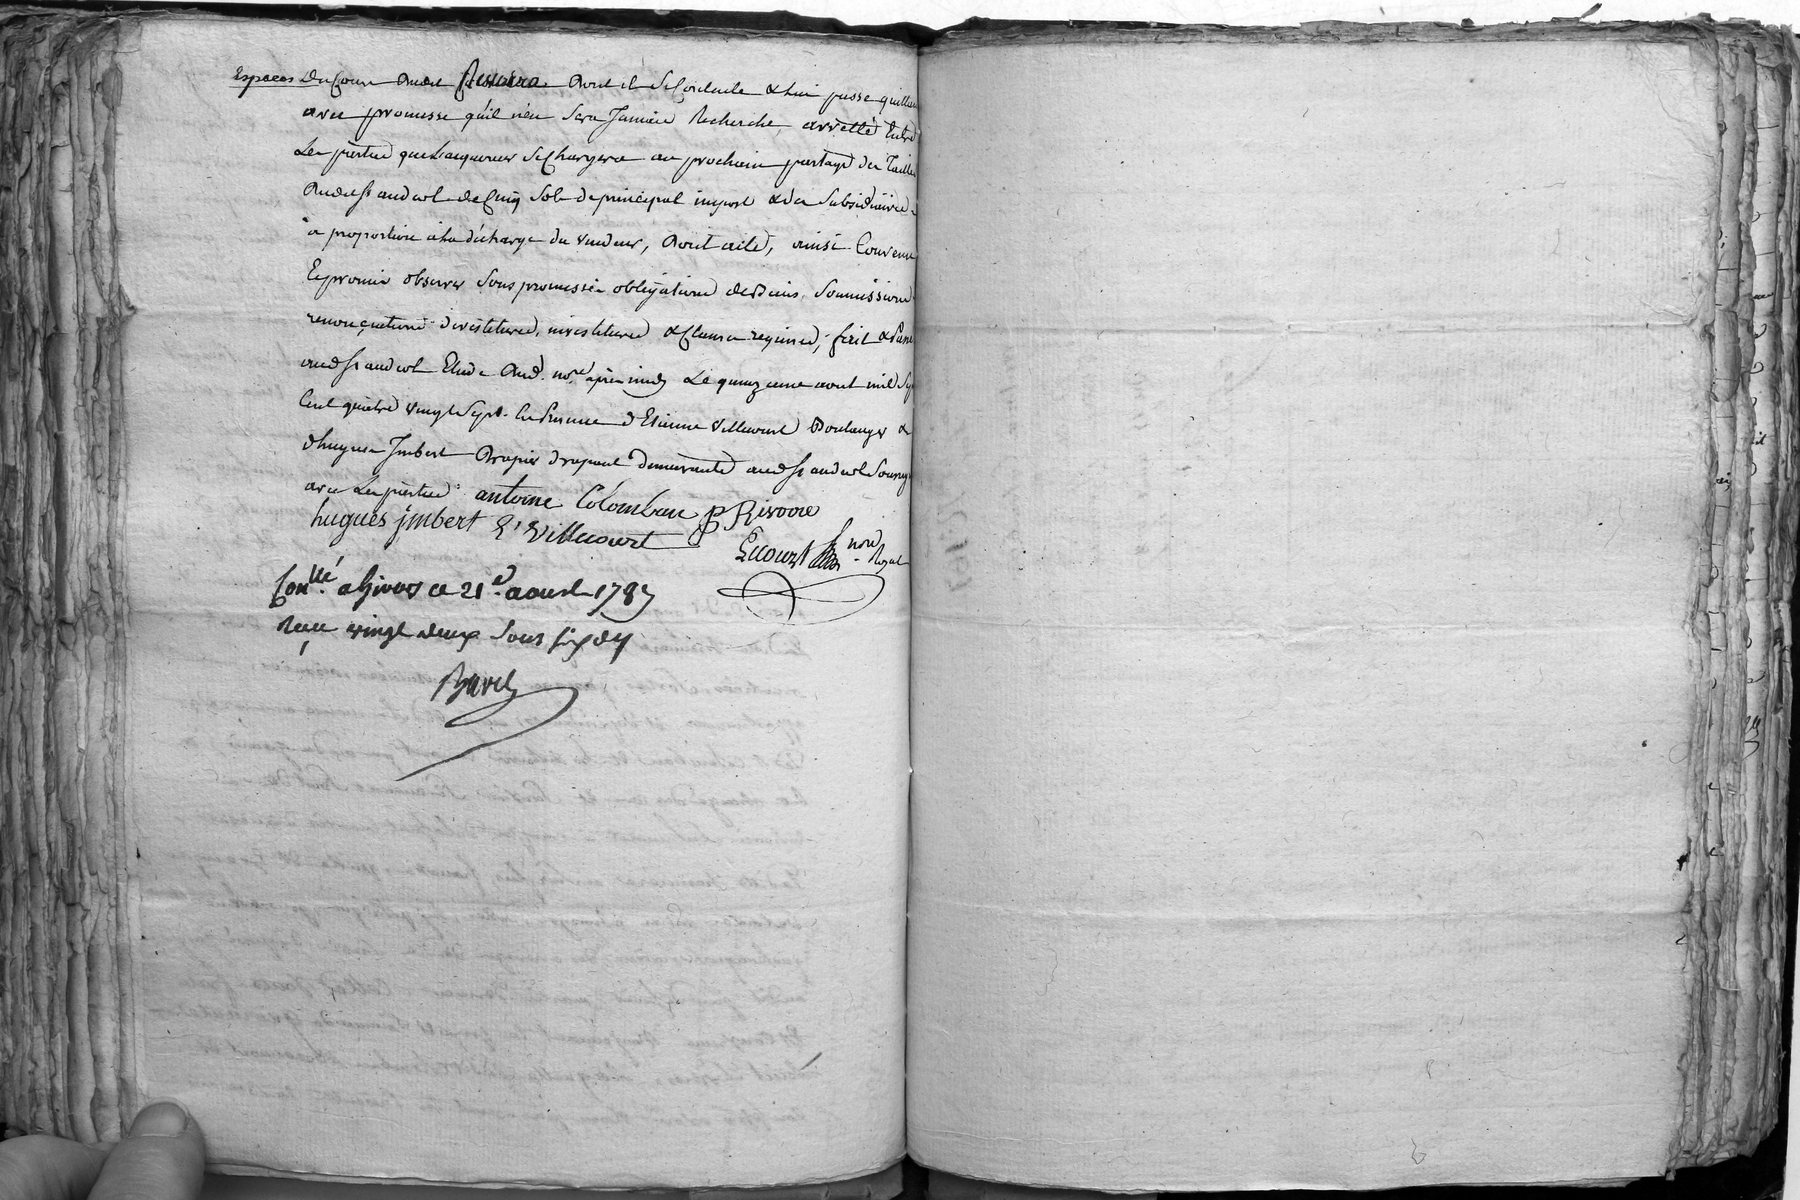 Especes du Cours audit Rivoire dont il se Contente & lui passe quittance
avec promesse qu'il n'en sera Jamais Recherché, arretté Entre
Les parties que Lacquereur se Chargera au prochain partage des Tailles
Audit St andéol de Cinq sols de principal import & des subsidiaires
a proportion a la décharge du vendeur, Dont acte, ainsi Convenu
Et promis observer sous promesses obligations de Biens, soumissions
renonçations devestitures, investitures & Clauses requises; fait & Passé
audit St andéol Etude dud. nore après midy Le quinzieme aout mil sept
Cent quatre vingt sept. En Presence d'Etienne Villecourt Boulanger &
d'hugues Imbert Drapier drapant Demeurants audit St andéol soussignés
avec Les parties. antoine Colomban p Rivoire
hugues jmbert E. Villecourt
nore Royal
Conllé a Givors ce 21e aoust 1787
Reçu vingt deux sous six drs